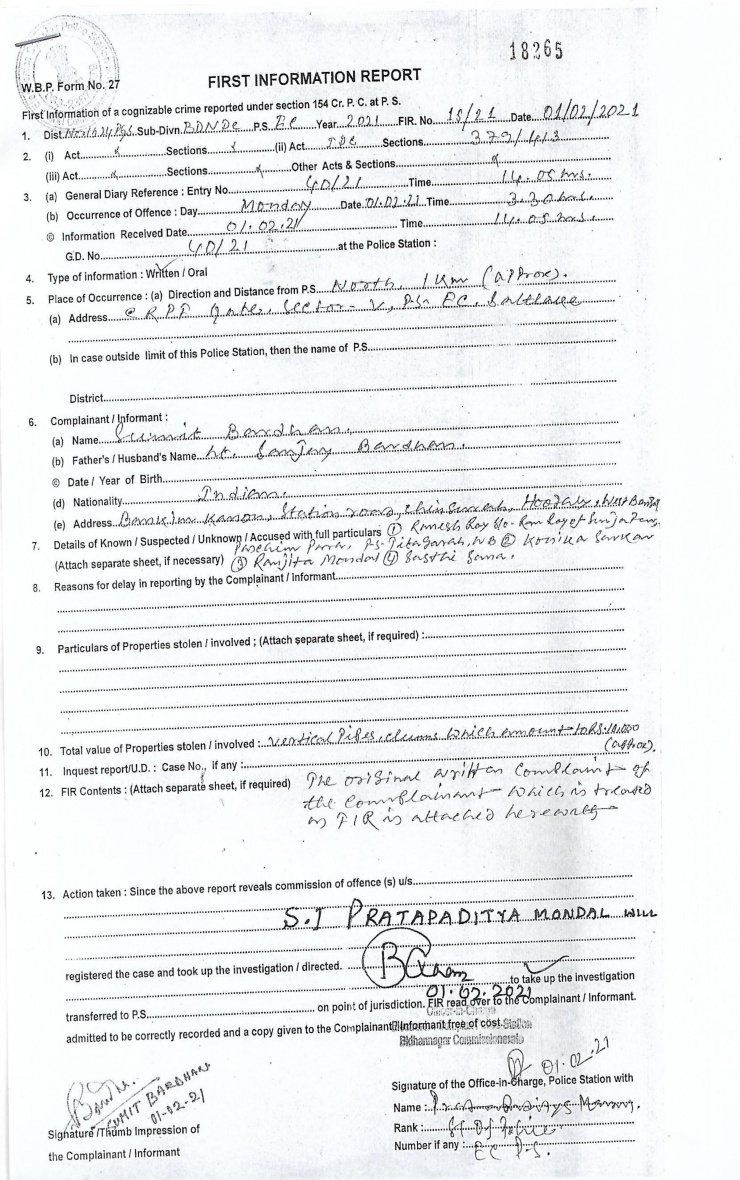 18265
W.B.P. Form No. 27
FIRST INFORMATION REPORT
First Information of a cognizable crime reported under section 154 Cr. P. C. at P. S.
1. Dist. North 24 Pgs. Sub-Divn. BDNDC P.S. EC Year 2021 FIR. No. 15/21 Date 01/02/2021
2. (i) Act x Sections x (ii) Act IPC Sections 379/413
(iii) Act x Sections x Other Acts & Sections x
3. (a) General Diary Reference : Entry No. 40/21 Time 14.05 hrs.
(b) Occurrence of Offence : Day Monday Date 01.02.21 Time 3.30 hrs.
© Information Received Date 01.02.21 Time 14.05 hrs.
G.D. No. 40/21 at the Police Station :
4. Type of information : Written / Oral
5. Place of Occurrence : (a) Direction and Distance from P.S. North, 1 Km (approx).
(a) Address @ RPF Gate, Sector - V, P.S. EC, Saltlake
(b) In case outside limit of this Police Station, then the name of P.S.
District
6. Complainant / Informant :
(a) Name Sumit Bardhan.
(b) Father's / Husband's Name Lt. Sanjay Bardhan.
© Date / Year of Birth
(d) Nationality Indian.
(e) Address Bankim Kanon, Station road, Chinsurah, Hooghly, West Bengal
7. Details of Known / Suspected / Unknown / Accused with full particulars ① Ramesh Roy S/o- Ram Roy of
(Attach separate sheet, if necessary) Paschim Para, PS- Titagarah, WB ② Konika Sarkar
③ Ranjita Mondal ④ Sasthi Sana.
8. Reasons for delay in reporting by the Complainant / Informant
9. Particulars of Properties stolen / involved ; (Attach separate sheet, if required) :
10. Total value of Properties stolen / involved : vertical Pipes, clums which amount to RS. 10,000
(approx).
11. Inquest report/U.D. : Case No., if any :
12. FIR Contents : (Attach separate sheet, if required) The original written complaint of
the complainant which is treated
as FIR is attached herewith
13. Action taken : Since the above report reveals commission of offence (s) u/s
S.I PRATAPADITYA MONDAL WILL
registered the case and took up the investigation / directed. to take up the investigation
01.02.2021
transferred to P.S. on point of jurisdiction. FIR read over to the Complainant / Informant.
Officer-in-Charge
admitted to be correctly recorded and a copy given to the Complainant / Informant free of cost.
Station
Bidhannagar Commissionerate
01.02.21
Signature of the Office-in-Charge, Police Station with
SUMIT BARDHAN
01-02-21
Name :
Signature /Thumb Impression of
Rank : SI of Police
the Complainant / Informant
Number if any : EC P.S.